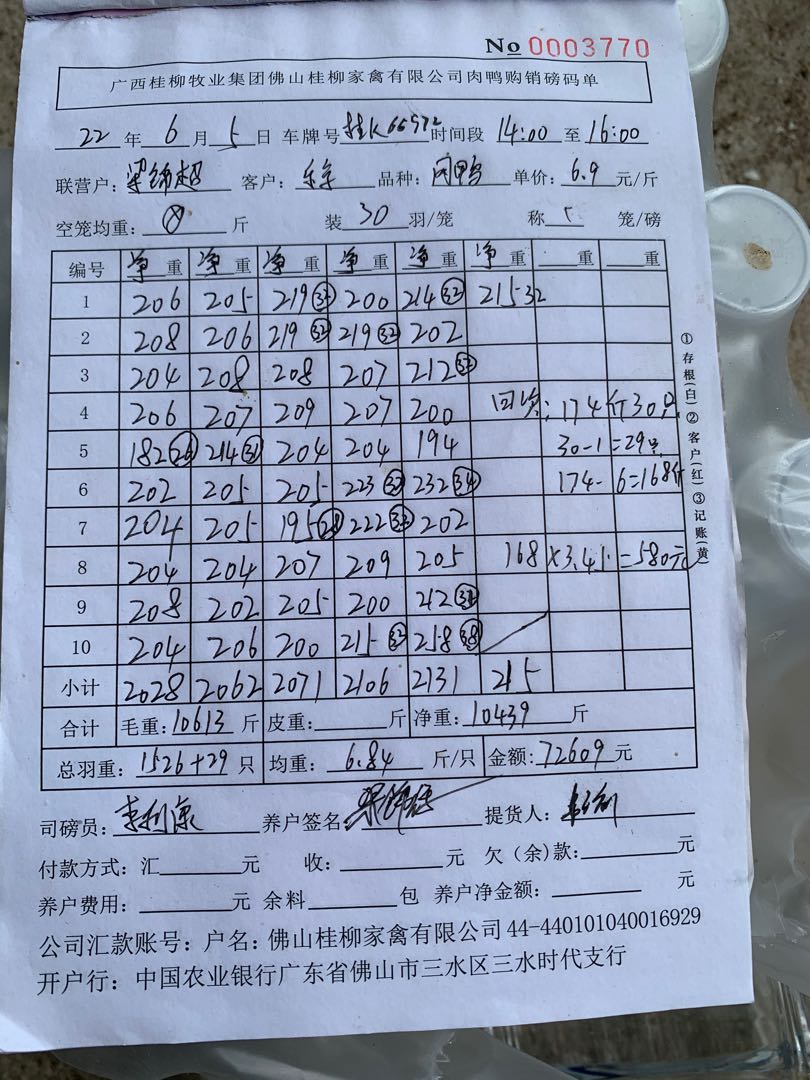 No 0003770
广西桂柳牧业集团佛山桂柳家禽有限公司肉鸭购销磅码单
22 年 6 月 5 日 车牌号 桂K65972 时间段 14:00 至 16:00
联营户: 梁锦超 客户: 品种: 肉鸭 单价: 6.9 元/斤
空笼均重: 斤 装 30 羽/笼 称 5 笼/磅
编号 净重 净重 净重 净重 净重 净重 重 重
1 206 205 219(32) 200 214(32) 215 32
2 208 206 219(32) 219(32) 202
3 204 208 208 207 212(32)
4 206 207 209 207 200 回 : 174斤30只
5 182(26) 214(31) 204 204 194 30-1=29只
6 202 205 205 223(33) 232(34) 174-6=168斤
7 204 205 195(28) 222(33) 202
8 204 204 207 209 205 168×3.45=580元
9 208 202 205 200 212(32)
10 204 206 200 215(32) 258(38)
小计 2028 2062 2071 2106 2131 215
合计 毛重: 10613 斤 皮重: 斤 净重: 10439 斤
总羽重: 1526+29 只 均重: 6.84 斤/只 金额: 72609 元
司磅员: 李利康 养户签名: 提货人:
付款方式: 汇 元 收: 元 欠(余)款: 元
养户费用: 元 余料 包 养户净金额: 元
公司汇款账号: 户名: 佛山桂柳家禽有限公司 44-440101040016929
开户行: 中国农业银行广东省佛山市三水区三水时代支行
①存根(白)②客户(红)③记账(黄)